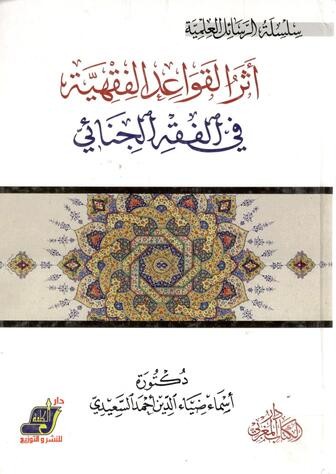 سلسلة الرسائل العلمية
أثر القواعد الفقهية
في الفقه الجنائي
دكتورة
أسماء ضياء الدين أحمد السعيدي
دار
للنشر والتوزيع
دار
الكتاب المغربي